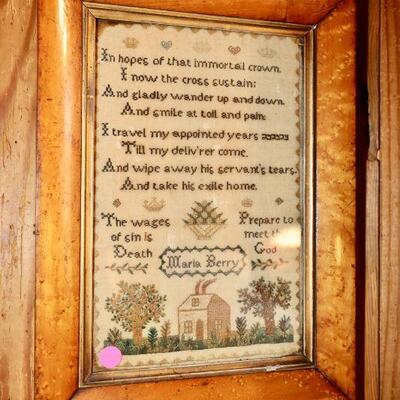 In hopes of that immortal crown
I now the cross sustain:
And gladly wander up and down.
And smile at toil and pain:
I travel my appointed years
Till my deliv'rer come.
And wipe away his servant's tears.
And take his exile home.
The wages
of sin is
Death
Prepare to
meet th
God
Maria Berry